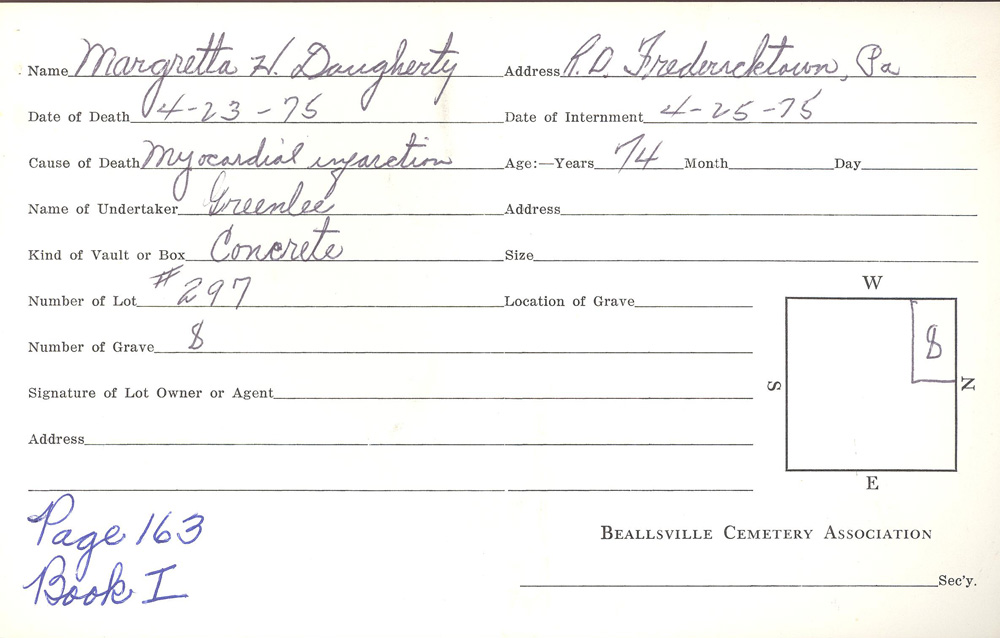 Name Margretta H. Daugherty Address R.D. Fredericktown, Pa
Date of Death 4-23-75 Date of Internment 4-25-75
Cause of Death Myocardial infarction Age:—Years 74 Month Day
Name of Undertaker Greenlee Address
Kind of Vault or Box Concrete Size
Number of Lot #297 Location of Grave
Number of Grave 8
Signature of Lot Owner or Agent
Address
W
8
S N
E
Page 163
Book I
BEALLSVILLE CEMETERY ASSOCIATION
Sec'y.